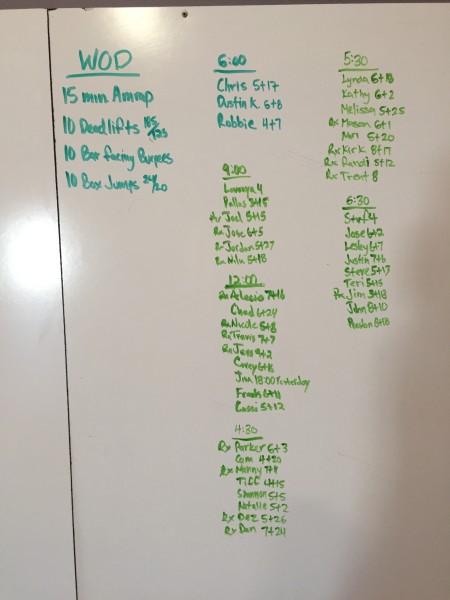 WOD
15 min Amrap
10 Deadlifts 185/125
10 Bar facing Burpees
10 Box Jumps 24/20
6:00
Chris 5+17
Dustin K. 6+8
Robbie 4+7
9:00
4
Rx Joel 5+15
Rx Jose 6+5
Rx Jordan 5+27
Rx 5+18
12:00
Rx 7+16
Chad 6+24
Rx Nicole 5+8
Rx Travis 7+7
Rx Jess 9+2
Corey 6+8
Jna 18:00 Yesterday
Frank 6+11
Cassi 5+12
4:30
Rx Parker 6+3
Cam 4+20
Rx Manny 7+9
Tiff 4+15
Shannon 5+5
Natalie 5+2
Rx Dez 5+26
Rx Dan 7+24
5:30
Lynda 6+18
Kathy 6+2
Melissa 5+25
Rx Mason 6+1
5+20
Rx Kirk 8+17
Rx Randi 5+12
Rx Trent 8
6:30
Stef 4
Jose 6+2
Lesley 6+7
Justin 7+6
Steve 5+17
Teri 5+15
Rx Jim 3+18
John 8+10
Preston 8+18